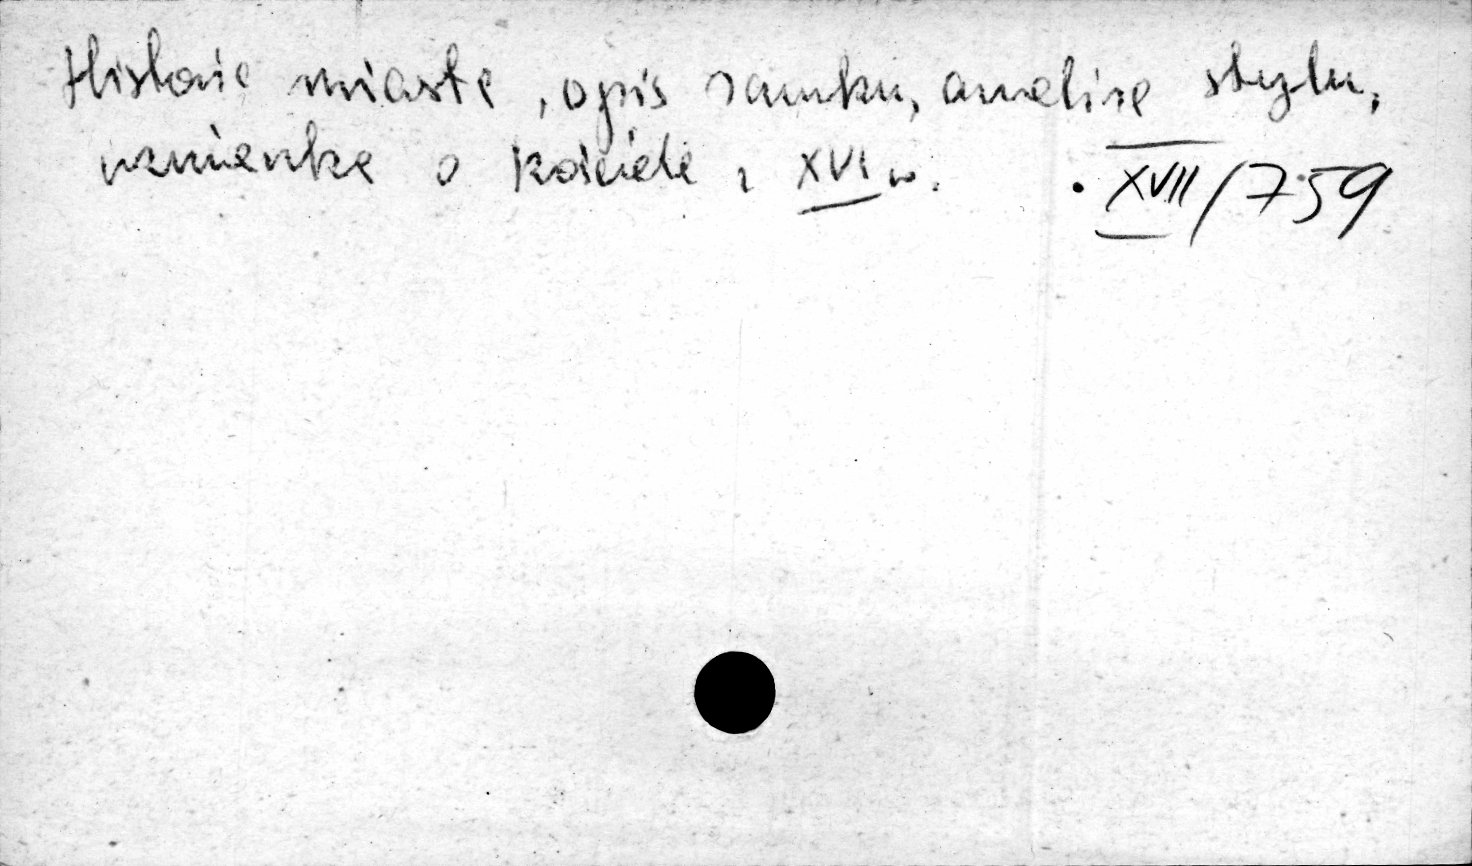 Historia miasta, opis zamku, analiza stylu,
wzmianka o kościele z XVI w. . XVII/759